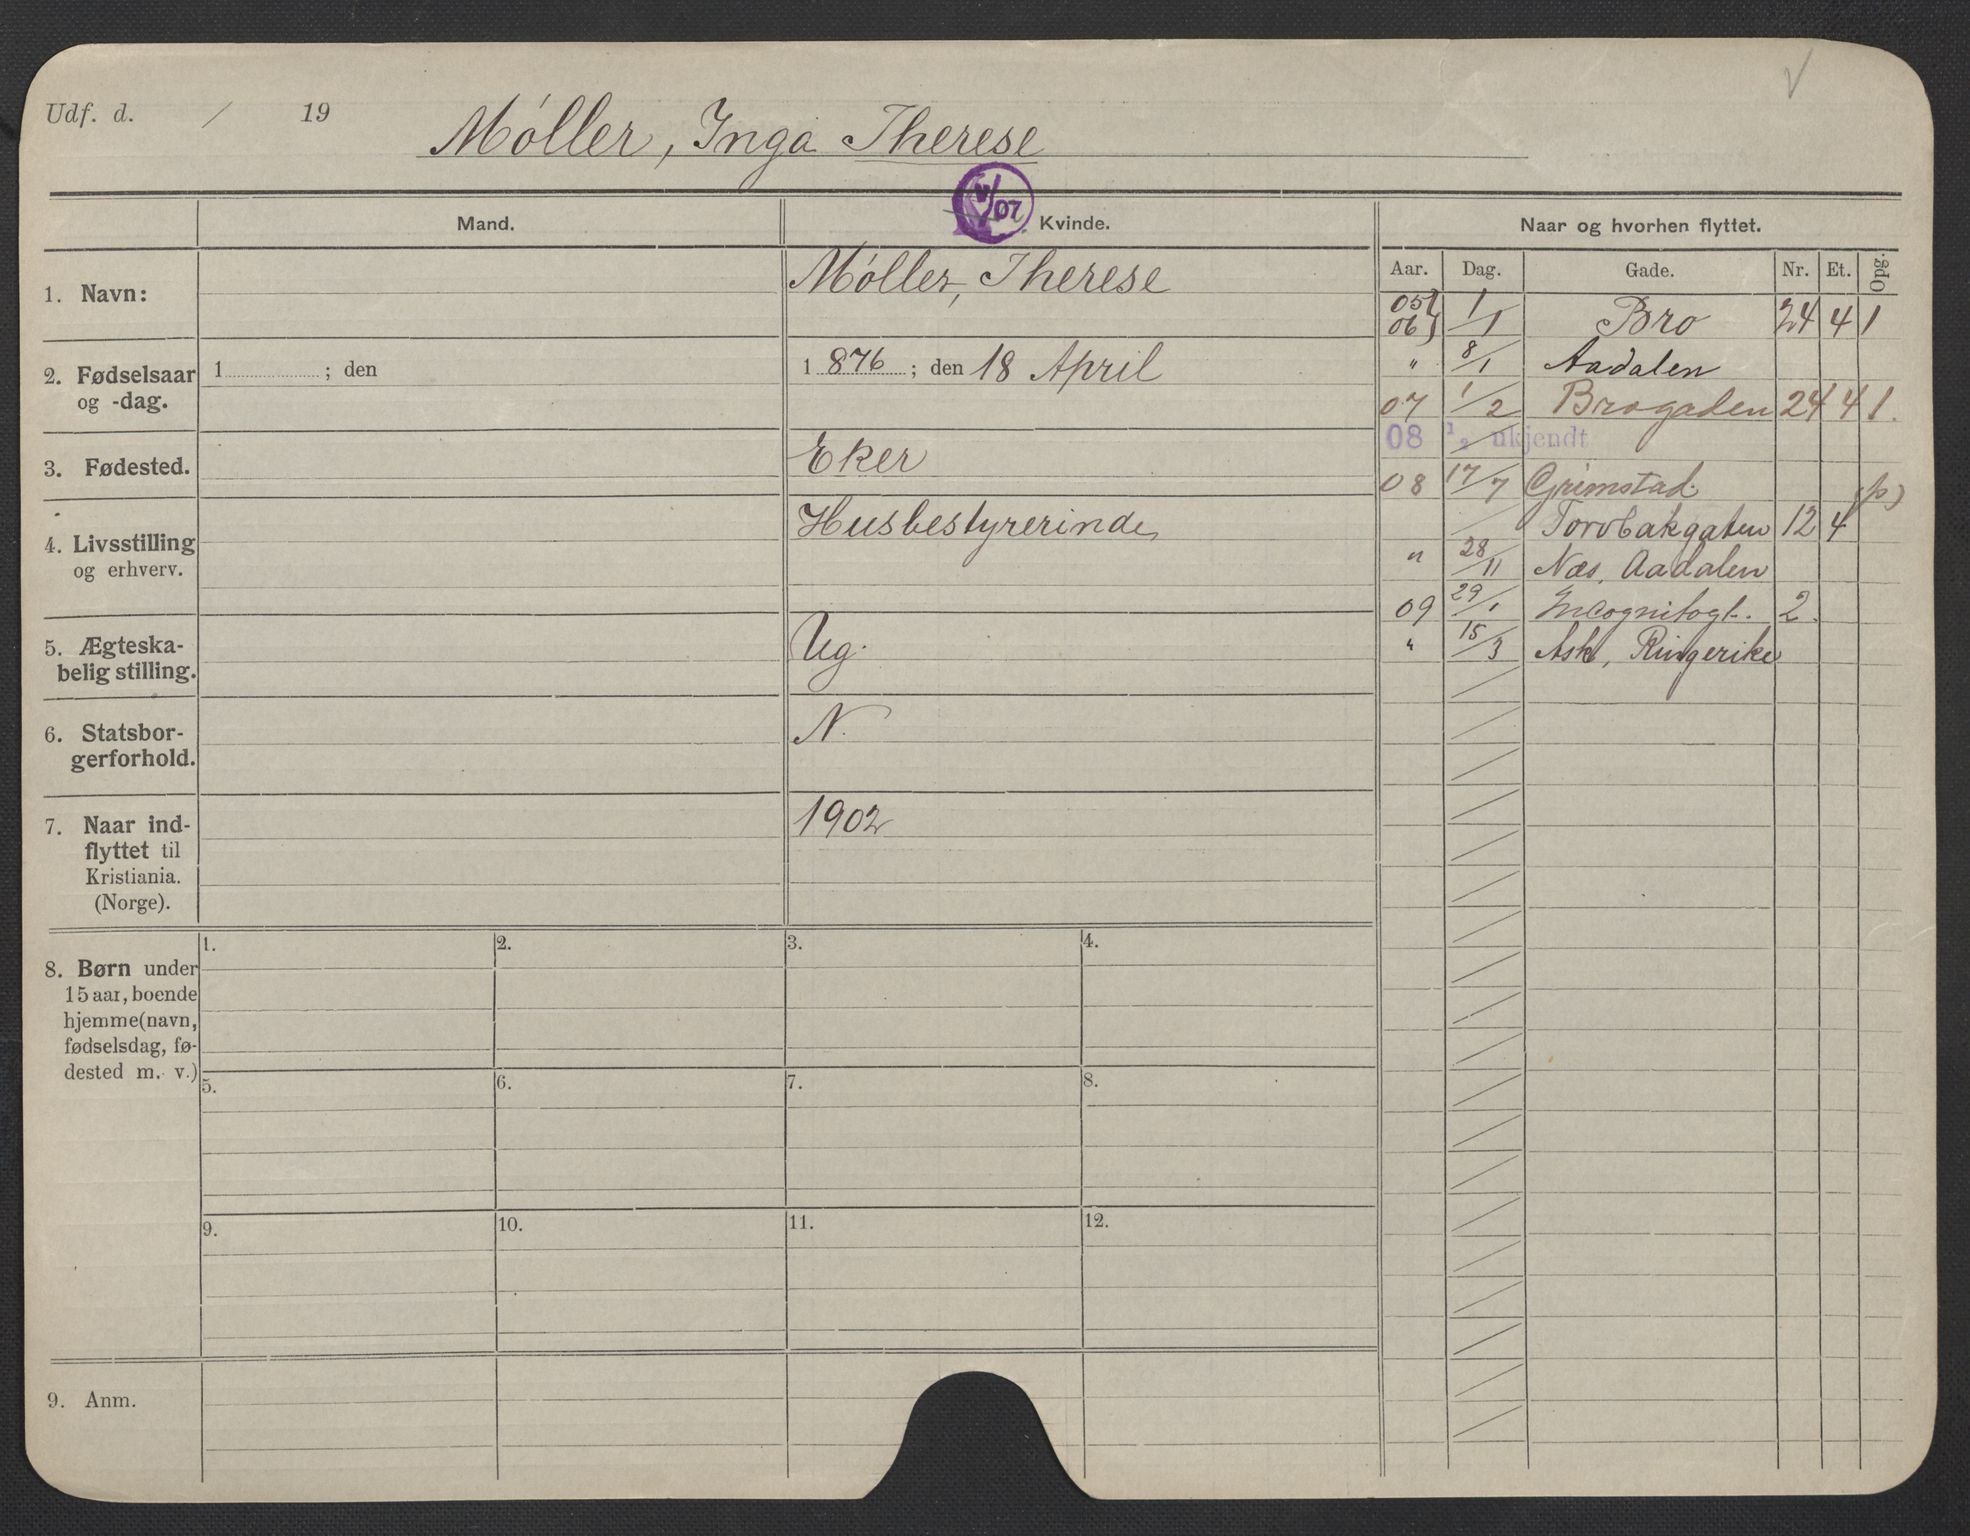 Udf. d. / 19
Møller, Inga Therese
Mand.
Kvinde.
Naar og hvorhen flyttet.
Aar. Dag. Gade. Nr. Et. Opg.
1. Navn:
Møller, Therese
2. Fødselsaar
og -dag.
1 ; den
1 876 ; den 18 April
3. Fødested.
Eker
4. Livsstilling
og erhverv.
Husbestyrerinde
5. Ægteska-
belig stilling.
Ug.
6. Statsbor-
gerforhold.
N.
7. Naar ind-
flyttet til
Kristiania.
(Norge).
1902
05 }
06 } 1/1 Bro 24 4 1
" 8/1 Aadalen
07 1/2 Brogaden 24 4 1.
08 1/2 ukjendt
08 17/7 Grimstad. (p)
Torvbakgaten 12 4
" 28/11 Næs, Aadalen
09 29/1 Incognitogt. 2.
" 15/3 Ask, Ringerike
8. Børn under
15 aar, boende
hjemme (navn,
fødselsdag, fø-
dested m. v.)
1. 2. 3. 4.
5. 6. 7. 8.
9. 10. 11. 12.
9. Anm.